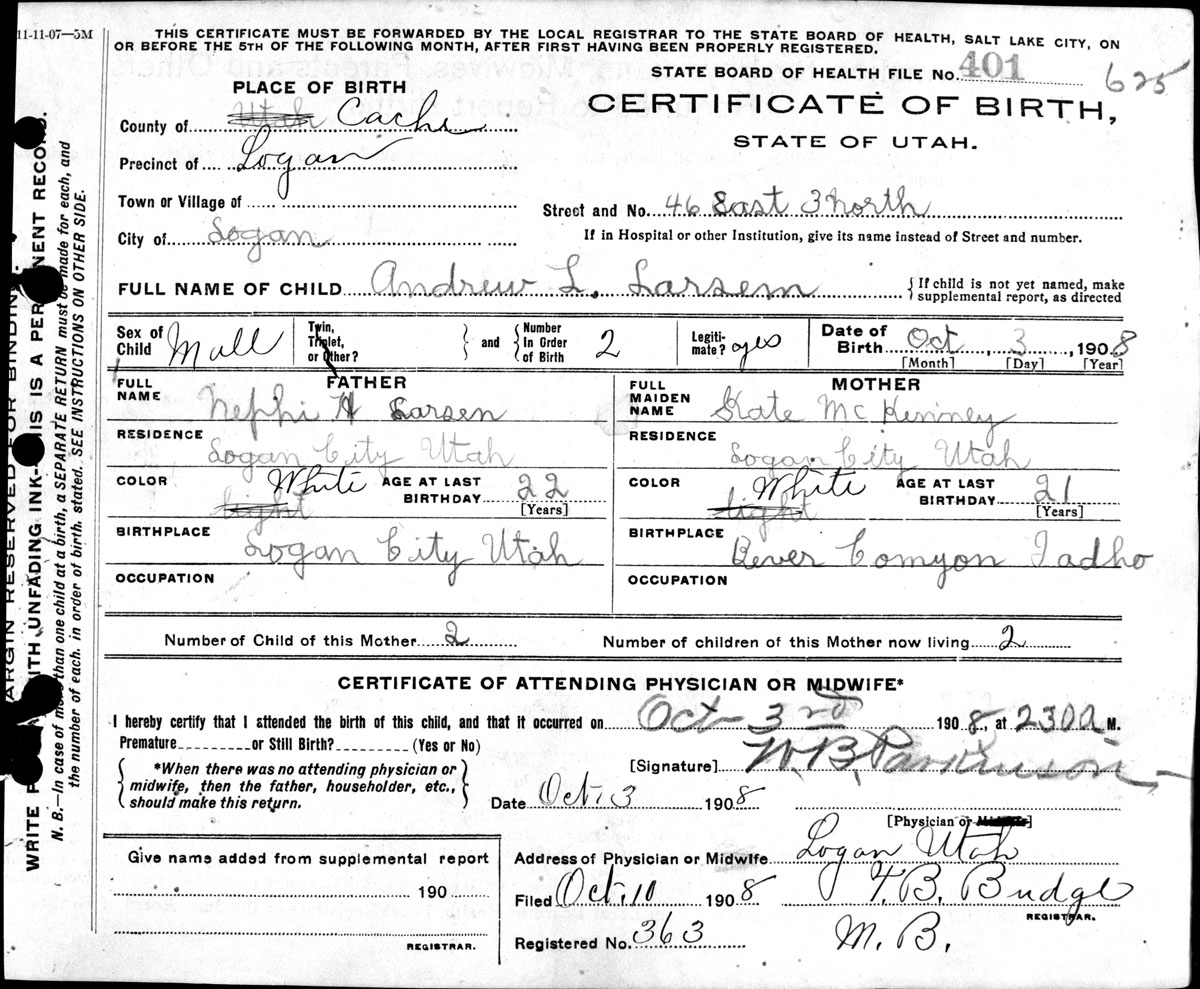 11-11-07—5M
THIS CERTIFICATE MUST BE FORWARDED BY THE LOCAL REGISTRAR TO THE STATE BOARD OF HEALTH, SALT LAKE CITY, ON
OR BEFORE THE 5TH OF THE FOLLOWING MONTH, AFTER FIRST HAVING BEEN PROPERLY REGISTERED.
STATE BOARD OF HEALTH FILE No. 401 625
PLACE OF BIRTH
CERTIFICATE OF BIRTH,
STATE OF UTAH.
County of Utah Cache
Precinct of Logan
Town or Village of
Street and No. 46 East 3 North
City of Logan
If in Hospital or other Institution, give its name instead of Street and number.
FULL NAME OF CHILD Andrew L. Larsem
{ If child is not yet named, make
supplemental report, as directed
Sex of Child Mall
Twin, Triplet, or Other? } and { Number In Order of Birth 2
Legitimate? yes
Date of Birth Oct, 3, 1908
[Month] [Day] [Year]
FATHER
FULL NAME Nephi H Larsen
RESIDENCE
Logan City Utah
COLOR White light AGE AT LAST BIRTHDAY 22
[Years]
BIRTHPLACE
Logan City Utah
OCCUPATION
MOTHER
FULL MAIDEN NAME Kate McKenney
RESIDENCE
Logan City Utah
COLOR White light AGE AT LAST BIRTHDAY 21
[Years]
BIRTHPLACE
Bever Comyon Iadho
OCCUPATION
Number of Child of this Mother 2 Number of children of this Mother now living 2
CERTIFICATE OF ATTENDING PHYSICIAN OR MIDWIFE*
I hereby certify that I attended the birth of this child, and that it occurred on Oct 3rd 1908, at 230 a M.
Premature or Still Birth? (Yes or No)
[Signature] W. B. Parkinson
{ *When there was no attending physician or
midwife, then the father, householder, etc.,
should make this return. }
Date Oct. 3 1908
[Physician or Midwife]
Give name added from supplemental report
190
REGISTRAR.
Address of Physician or Midwife Logan Utah
Filed Oct. 10 1908 T. B. Budge
REGISTRAR.
Registered No. 363 M. B.
MARGIN RESERVED FOR BINDING.
WRITE WITH UNFADING INK—THIS IS A PERMANENT RECORD.
N. B.—In case of more than one child at a birth, a SEPARATE RETURN must be made for each, and
the number of each, in order of birth, stated. SEE INSTRUCTIONS ON OTHER SIDE.